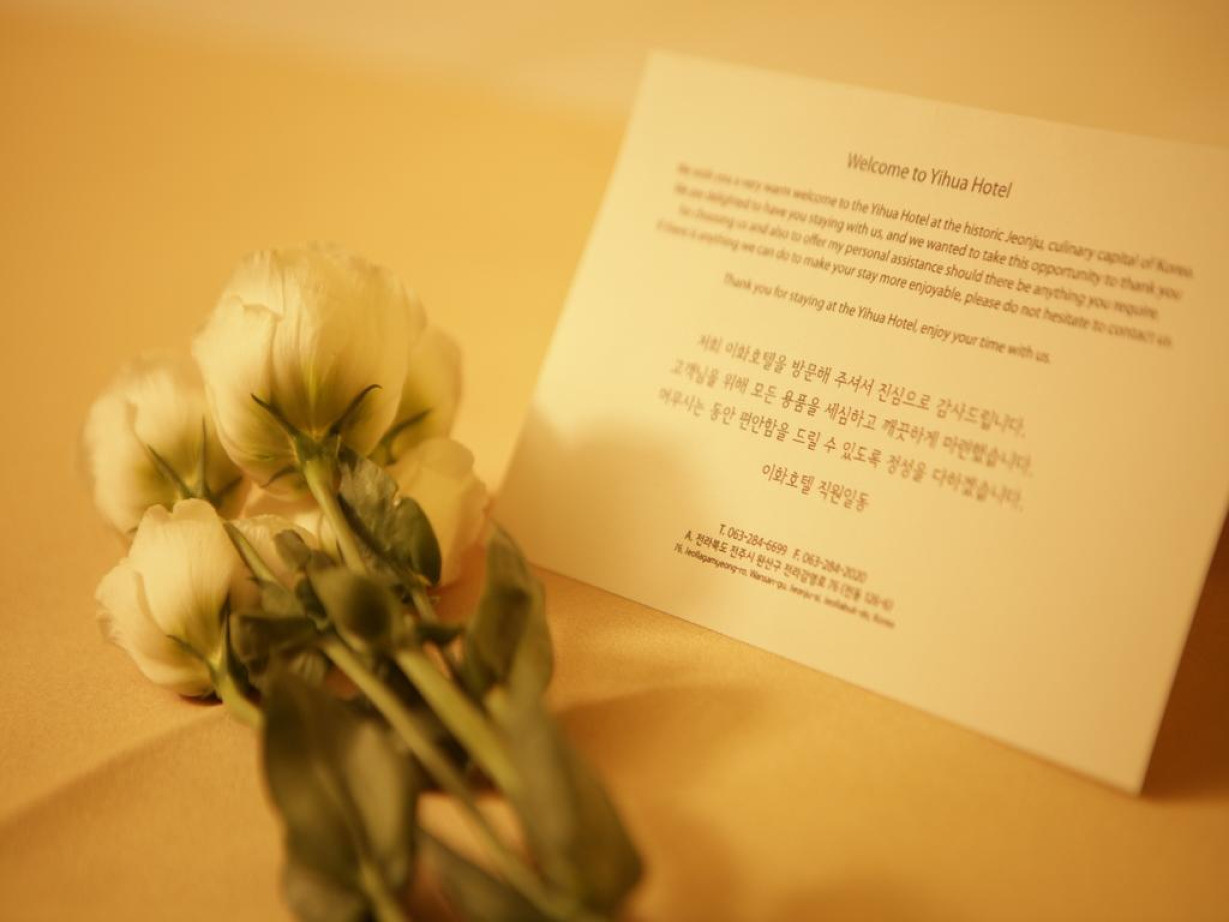 Welcome to Yihua Hotel
We wish you a very warm welcome to the Yihua Hotel at the historic Jeonju, culinary capital of Korea.
We are delighted to have you staying with us, and we wanted to take this opportunity to thank you
for choosing us and also to offer my personal assistance should there be anything you require.
If there is anything we can do to make your stay more enjoyable, please do not hesitate to contact us.
Thank you for staying at the Yihua Hotel, enjoy your time with us.
저희 이화호텔을 방문해 주셔서 진심으로 감사드립니다.
고객님을 위해 모든 용품을 세심하고 깨끗하게 마련했습니다.
머무시는 동안 편안함을 드릴 수 있도록 정성을 다하겠습니다.
이화호텔 직원일동
T. 063-284-6699 F. 063-284-2020
A. 전라북도 전주시 완산구 전라감영로 76 (전동 126-6)
76, Jeollagamyeong-ro, Wansan-gu, Jeonju-si, Jeollabuk-do, Korea